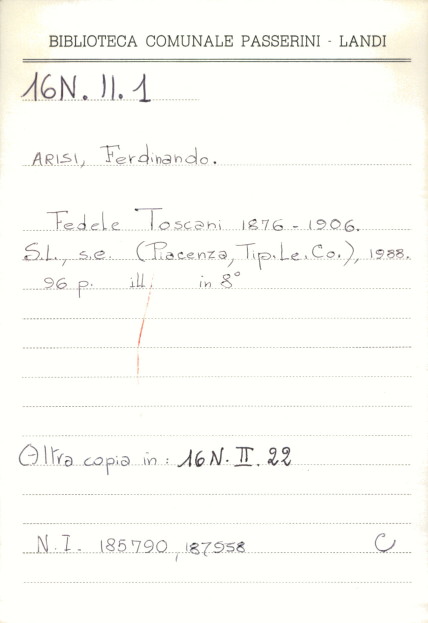 BIBLIOTECA COMUNALE PASSERINI - LANDI
16N. II. 1
ARISI, Ferdinando.
Fedele Toscani 1876 - 1906.
S.l., s.e. (Piacenza, Tip.Le.Co.), 1988.
96 p. ill. in 8°
Altra copia in: 16N. II. 22
N.I. 185790, 187958
C